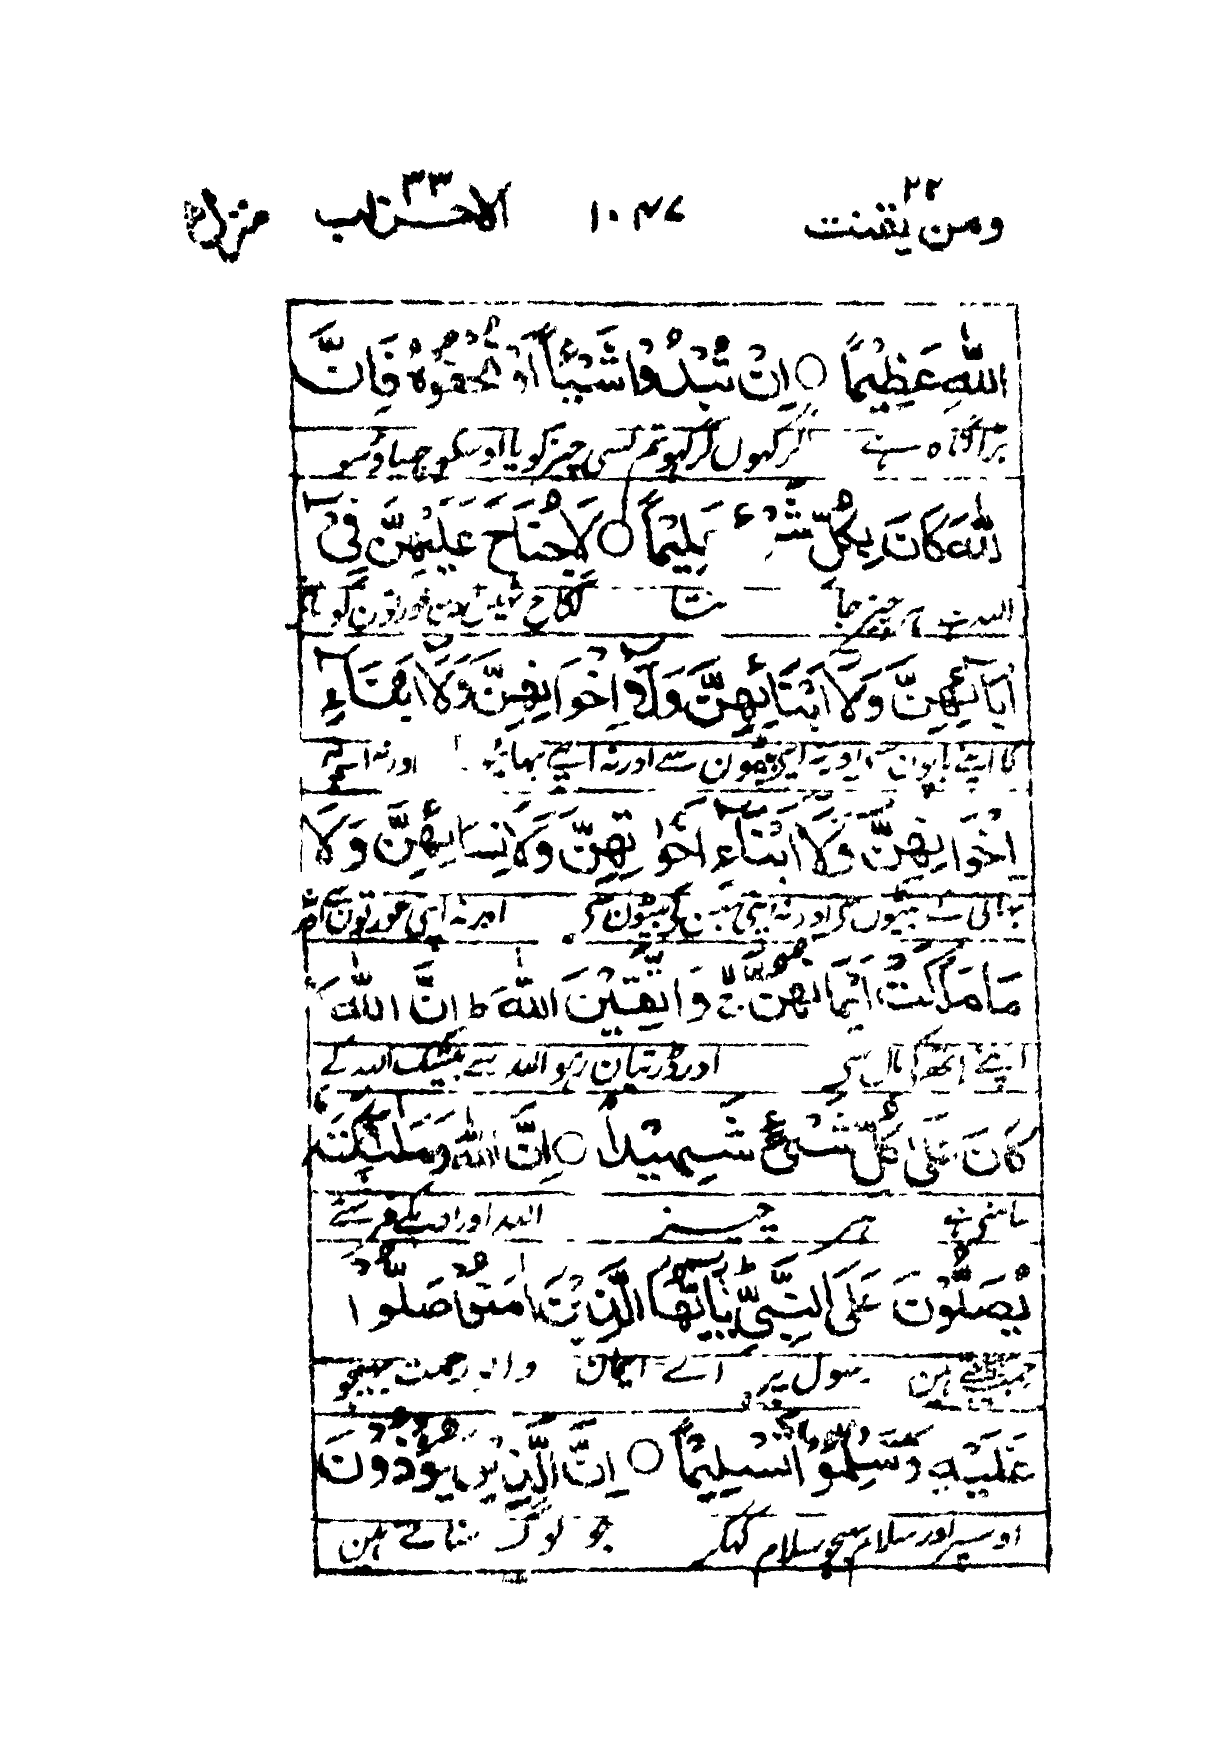 ومن یقنت ۲۲ ۱۰۴۷ الاحزاب ۳۳ منزل
اللهِ عَظِيْمًا ○ اِنْ تُبْدُوْا شَيْـًٔا اَوْ تُخْفُوْهُ فَاِنَّ
بڑا گناہ ہے اگر کھول کر کہو تم کسی چیز کو یا اوسکو چھپاؤ سو
اللهَ كَانَ بِكُلِّ شَيْءٍ عَلِيْمًا ○ لَا جُنَاحَ عَلَيْهِنَّ فِيْٓ
اللہ ہے ہر چیز جانتا گناہ نہیں اون عورتون کو
اٰبَآئِهِنَّ وَلَآ اَبْنَآئِهِنَّ وَلَآ اِخْوَانِهِنَّ وَلَآ اَبْنَآءِ
اپنے باپون سے اور نہ اپنے بیٹون سے اور نہ اپنے بھائیون اور نہ اپنے
اِخْوَانِهِنَّ وَلَآ اَبْنَآءِ اَخَوٰتِهِنَّ وَلَا نِسَآئِهِنَّ وَلَا
بھائی کے بیٹوں سے اور نہ اپنی بہن کے بیٹون سے اور نہ اپنی عورتون سے اور نہ
مَا مَلَكَتْ اَيْمَانُهُنَّ ۚ وَاتَّقِيْنَ اللهَ ط اِنَّ اللهَ
اپنے ہاتھ کے مال سے اور ڈرتیان رہو اللہ سے بیشک اللہ کے
كَانَ عَلٰى كُلِّ شَيْءٍ شَهِيْدًا ○ اِنَّ اللهَ وَمَلٰٓئِكَتَهٗ
سامنے ہے ہر چیز اللہ اور اوسکے فرشتے
يُصَلُّوْنَ عَلَى النَّبِيِّ ط يٰٓاَيُّهَا الَّذِيْنَ اٰمَنُوْا صَلُّوْا
رحمت بھیجتے ہین رسول پر اے ایمان والو رحمت بھیجو
عَلَيْهِ وَسَلِّمُوْا تَسْلِيْمًا ○ اِنَّ الَّذِيْنَ يُؤْذُوْنَ
اوسپر اور سلام بھیجو سلام کہکر جو لوگ ستاتے ہین